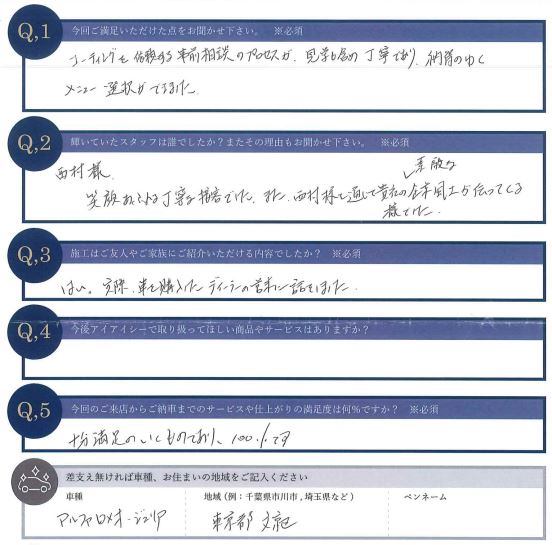 Q,1 今回ご満足いただけた点をお聞かせ下さい。 ※必須
コーティングを依頼する事前相談のプロセスが、見学も含め丁寧であり、納得のゆく
メニュー選択ができました。
Q,2 輝いていたスタッフは誰でしたか?またその理由もお聞かせ下さい。 ※必須
西村様
素敵な
笑顔あふれる丁寧な接客でした。また、西村様を通して貴社の企業風土が伝ってくる
様でした。
Q,3 施工はご友人やご家族にご紹介いただける内容でしたか? ※必須
はい。実際、車を購入したディーラーの営業に話をしました。
Q,4 今後アイアイシーで取り扱ってほしい商品やサービスはありますか?
Q,5 今回のご来店からご納車までのサービスや仕上がりの満足度は何%ですか? ※必須
十分満足のいくものであり、100%です
差支え無ければ車種、お住まいの地域をご記入ください
車種 地域 (例:千葉県市川市, 埼玉県など) ペンネーム
アルファロメオ・ジュリア 東京都